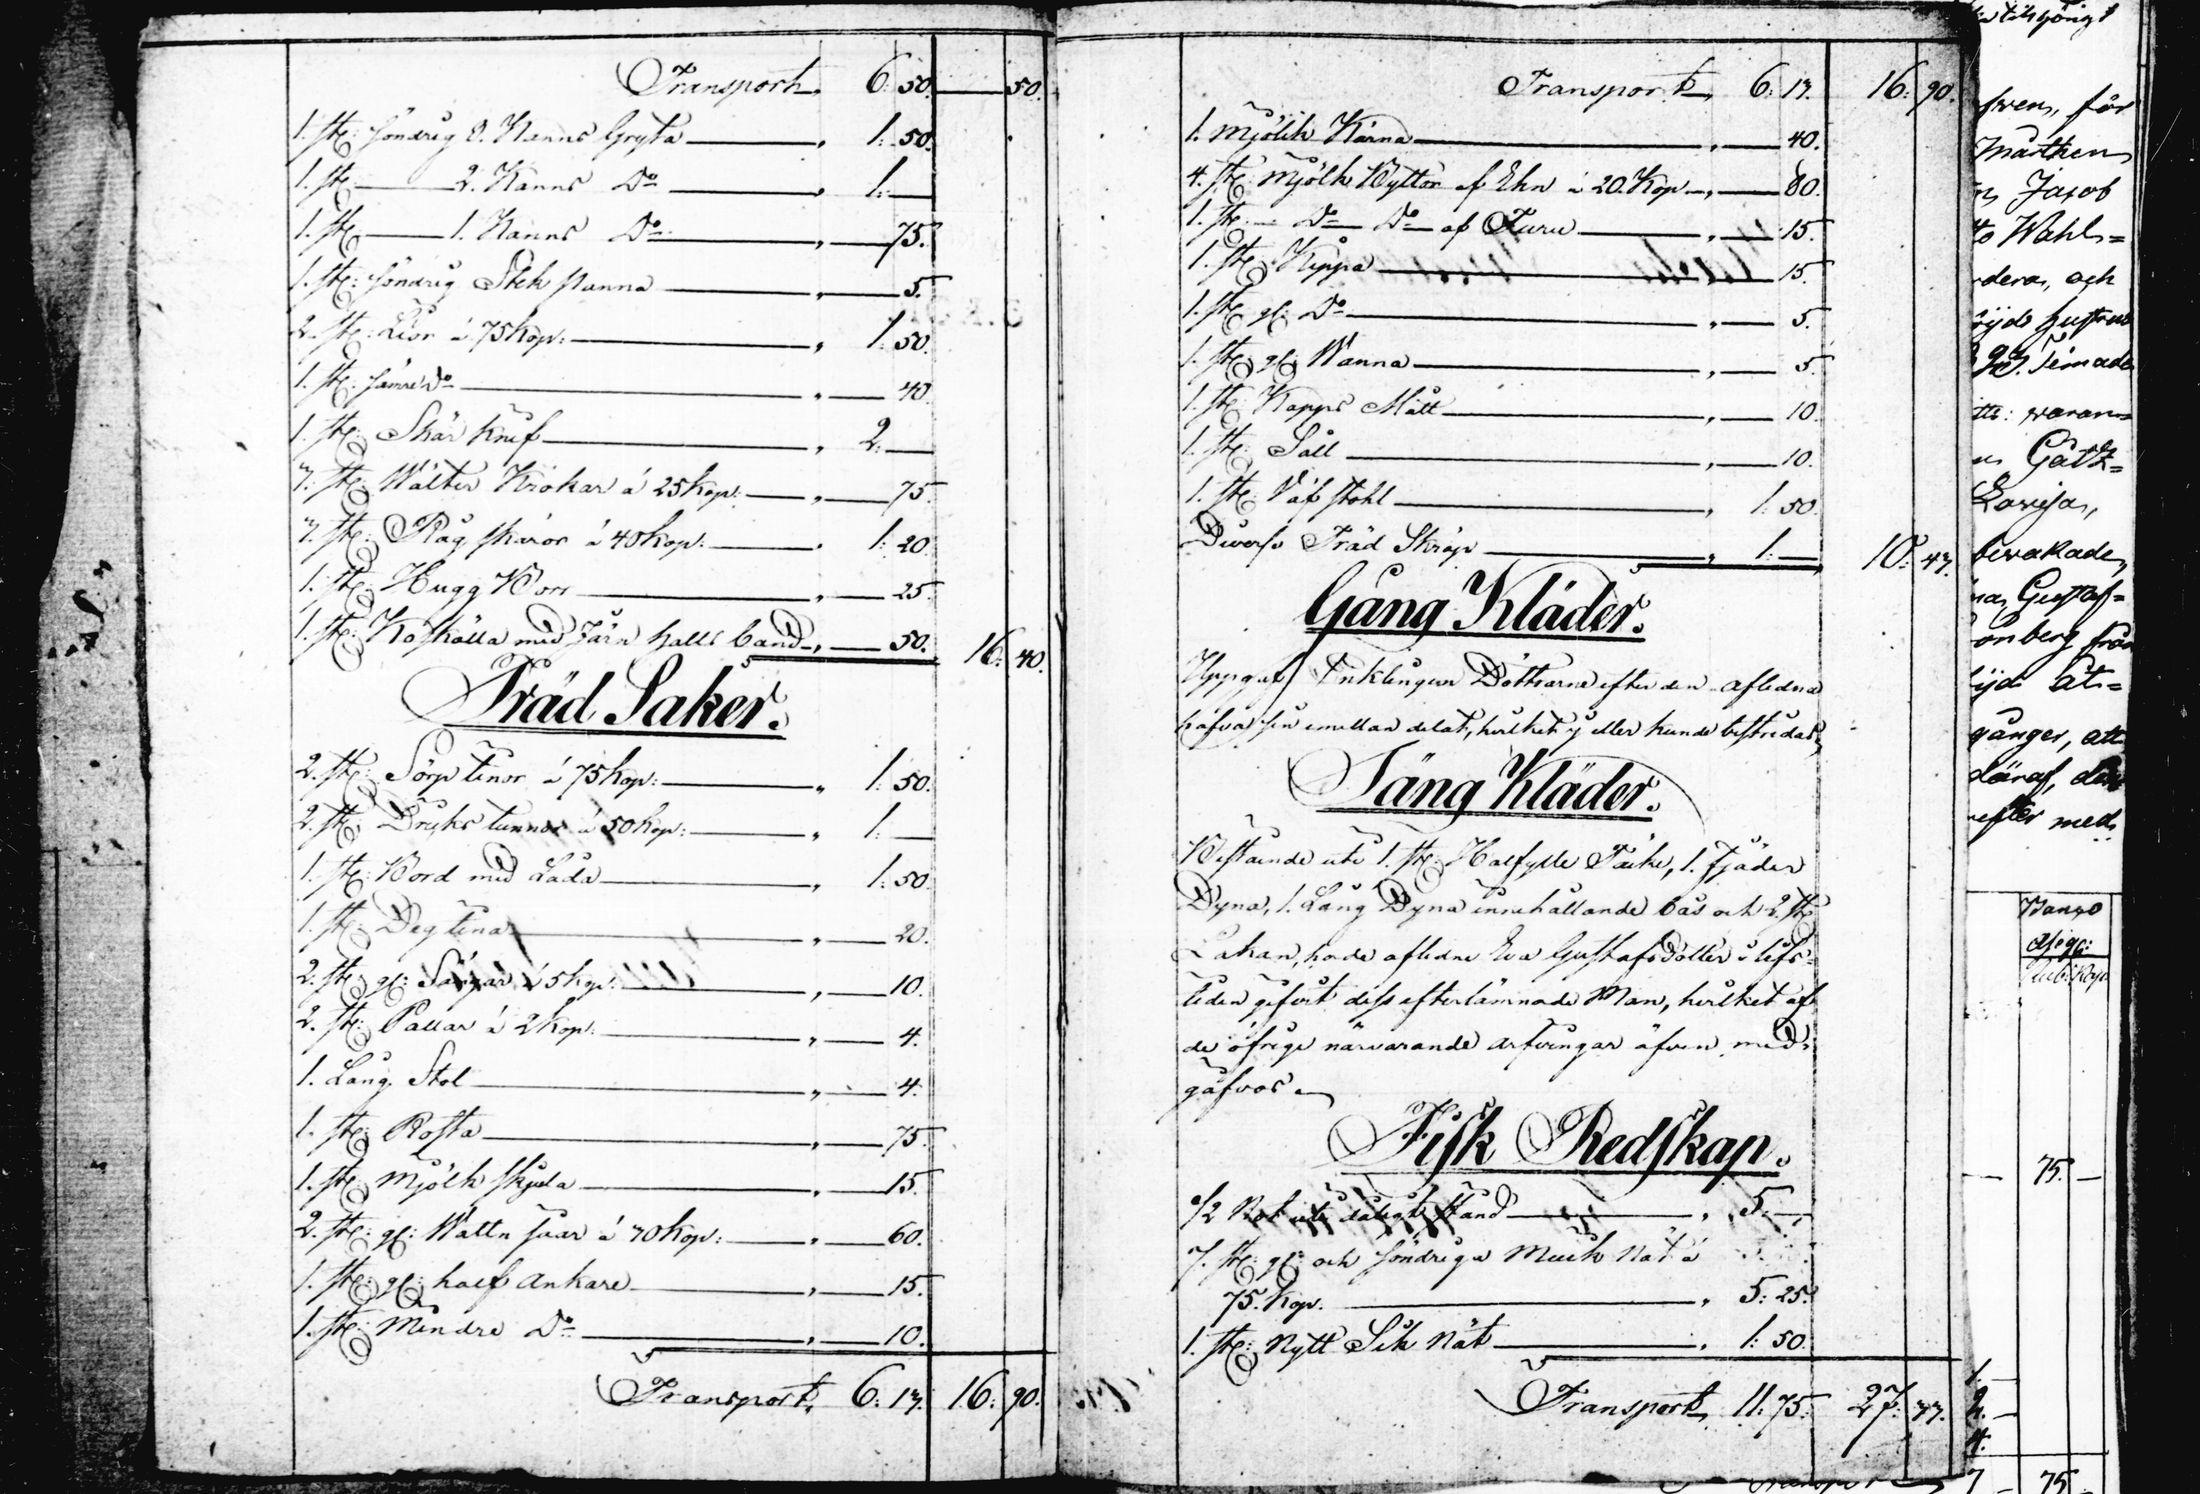 Transport, 6: 50. — 50.
1. st: söndrig 3. Kanns Gryta — " 1: 50.
1. st — 2. Kanns Do — " 1: —
1. st — 1. Kanns Do — " — 75.
1. st: söndrig Stek panna — " — 5.
2. st: Lior á 75 kop: — " 1: 50.
1. st: sämre Do — " — 40.
1. st: Skär knif — " 2: —
3. st: Wälter Krokar á 25 kop: — " — 75.
3. st: Råg skäror á 40 kop: — " 1: 20.
1. st: Hugg Borr — " — 25.
1. st: Koskälla med Järn halls band — " — 50. 16: 40.
Träd Saker.
2. st: Sörp tinor á 75 kop: — " 1: 50.
2. st: Dricks tunnor á 50 kop: — " 1: —
1. st: Bord med Låda — " 1: 50.
1. st: Deg tina — " — 20.
2. st: gl: Sängar á 5 kop: — " — 10.
2. st: Pallar á 2 kop: — " — 4.
1. Lång Stol — " — 4.
1. st: Rosta — " — 75.
1. st: Mjölk skjula — " — 15.
2. st: gl: Wattn såar á 30 kop: — " — 60.
1. st: gl: half Ankare — " — 15.
1. st: Mindre Do — " — 10.
Transport, 6: 13. 16: 90.
Transport, 6: 13. 16: 90.
1. Mjölk Kärna — " — 40.
4. st: Mjölk Byttor af Ehn á 20. Kop — " — 80.
1. st: — Do — Do — af Furu — " — 15.
1. st: Kippa — " — 15.
1. st: gl: Do — " — 5.
1. st: gl: Wanna — " — 5.
1. st: Kapps Mått — " — 10.
1. st: Såll — " — 10.
1. st: Väf stohl — " 1: 50.
Diverse Träd Skräp — " 1: — 10: 43.
Gång Kläder.
Uppgaf Enklingen Döttrarne efter den aflidna
hafva sin emellan delat, hvilket ej eller kunde bestridas
Säng Kläder.
Bestående uti 1. st: Halfylle Täcke, 1. Fjäder
Dyna, 1. Lång Dyna innehållande bås och 2. st
Lakan, hade aflidne Eva Gustafsdotter i lifs-
tiden gifvit dess efterlämnade Man, hvilket af
de öfrige närvarande arfvingar äfven med-
gåfvos
Fisk Redskap.
1/2 Not uti dåligt stånd — " 5: —
7. st: gl: och söndriga Muik Nät á
75. Kop. — " 5: 25.
1. st: Nytt Sik Nät — " 1: 50.
Transport, 11: 75. 27: 33.
fven, för
Mårthen
Jacob
to Wahls=
rdera, och
hustrun
waran=
Lovisa,
bevakade,
Gustaf=
onberg från
åt=
gånger, att
däraf, den
efter med
Banco
75. —
1. —
2. —
4.
7 — 75 —